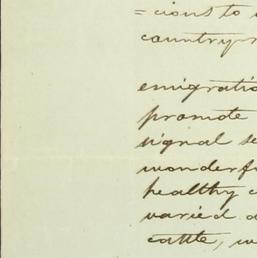 =cions to
country
emigratio
promote
signal se
wonderfu
healthy
varied a
cattle, w